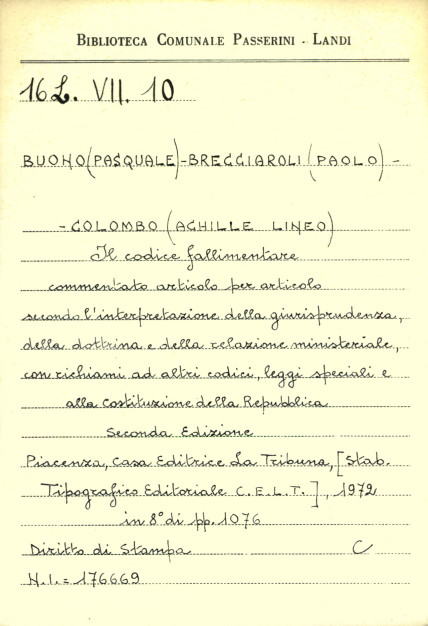 BIBLIOTECA COMUNALE PASSERINI - LANDI
16L. VII. 10
BUONO (PASQUALE) - BREGGIAROLI (PAOLO) -
- COLOMBO (ACHILLE LINEO)
Il codice fallimentare
commentato articolo per articolo
secondo l'interpretazione della giurisprudenza,
della dottrina e della relazione ministeriale,
con richiami ad altri codici, leggi speciali e
alla Costituzione della Repubblica
Seconda Edizione
Piacenza, Casa Editrice La Tribuna, [Stab.
Tipografico Editoriale C.E.L.T.], 1972
in 8° di pp. 1076
Diritto di Stampa C
N.I. = 176669